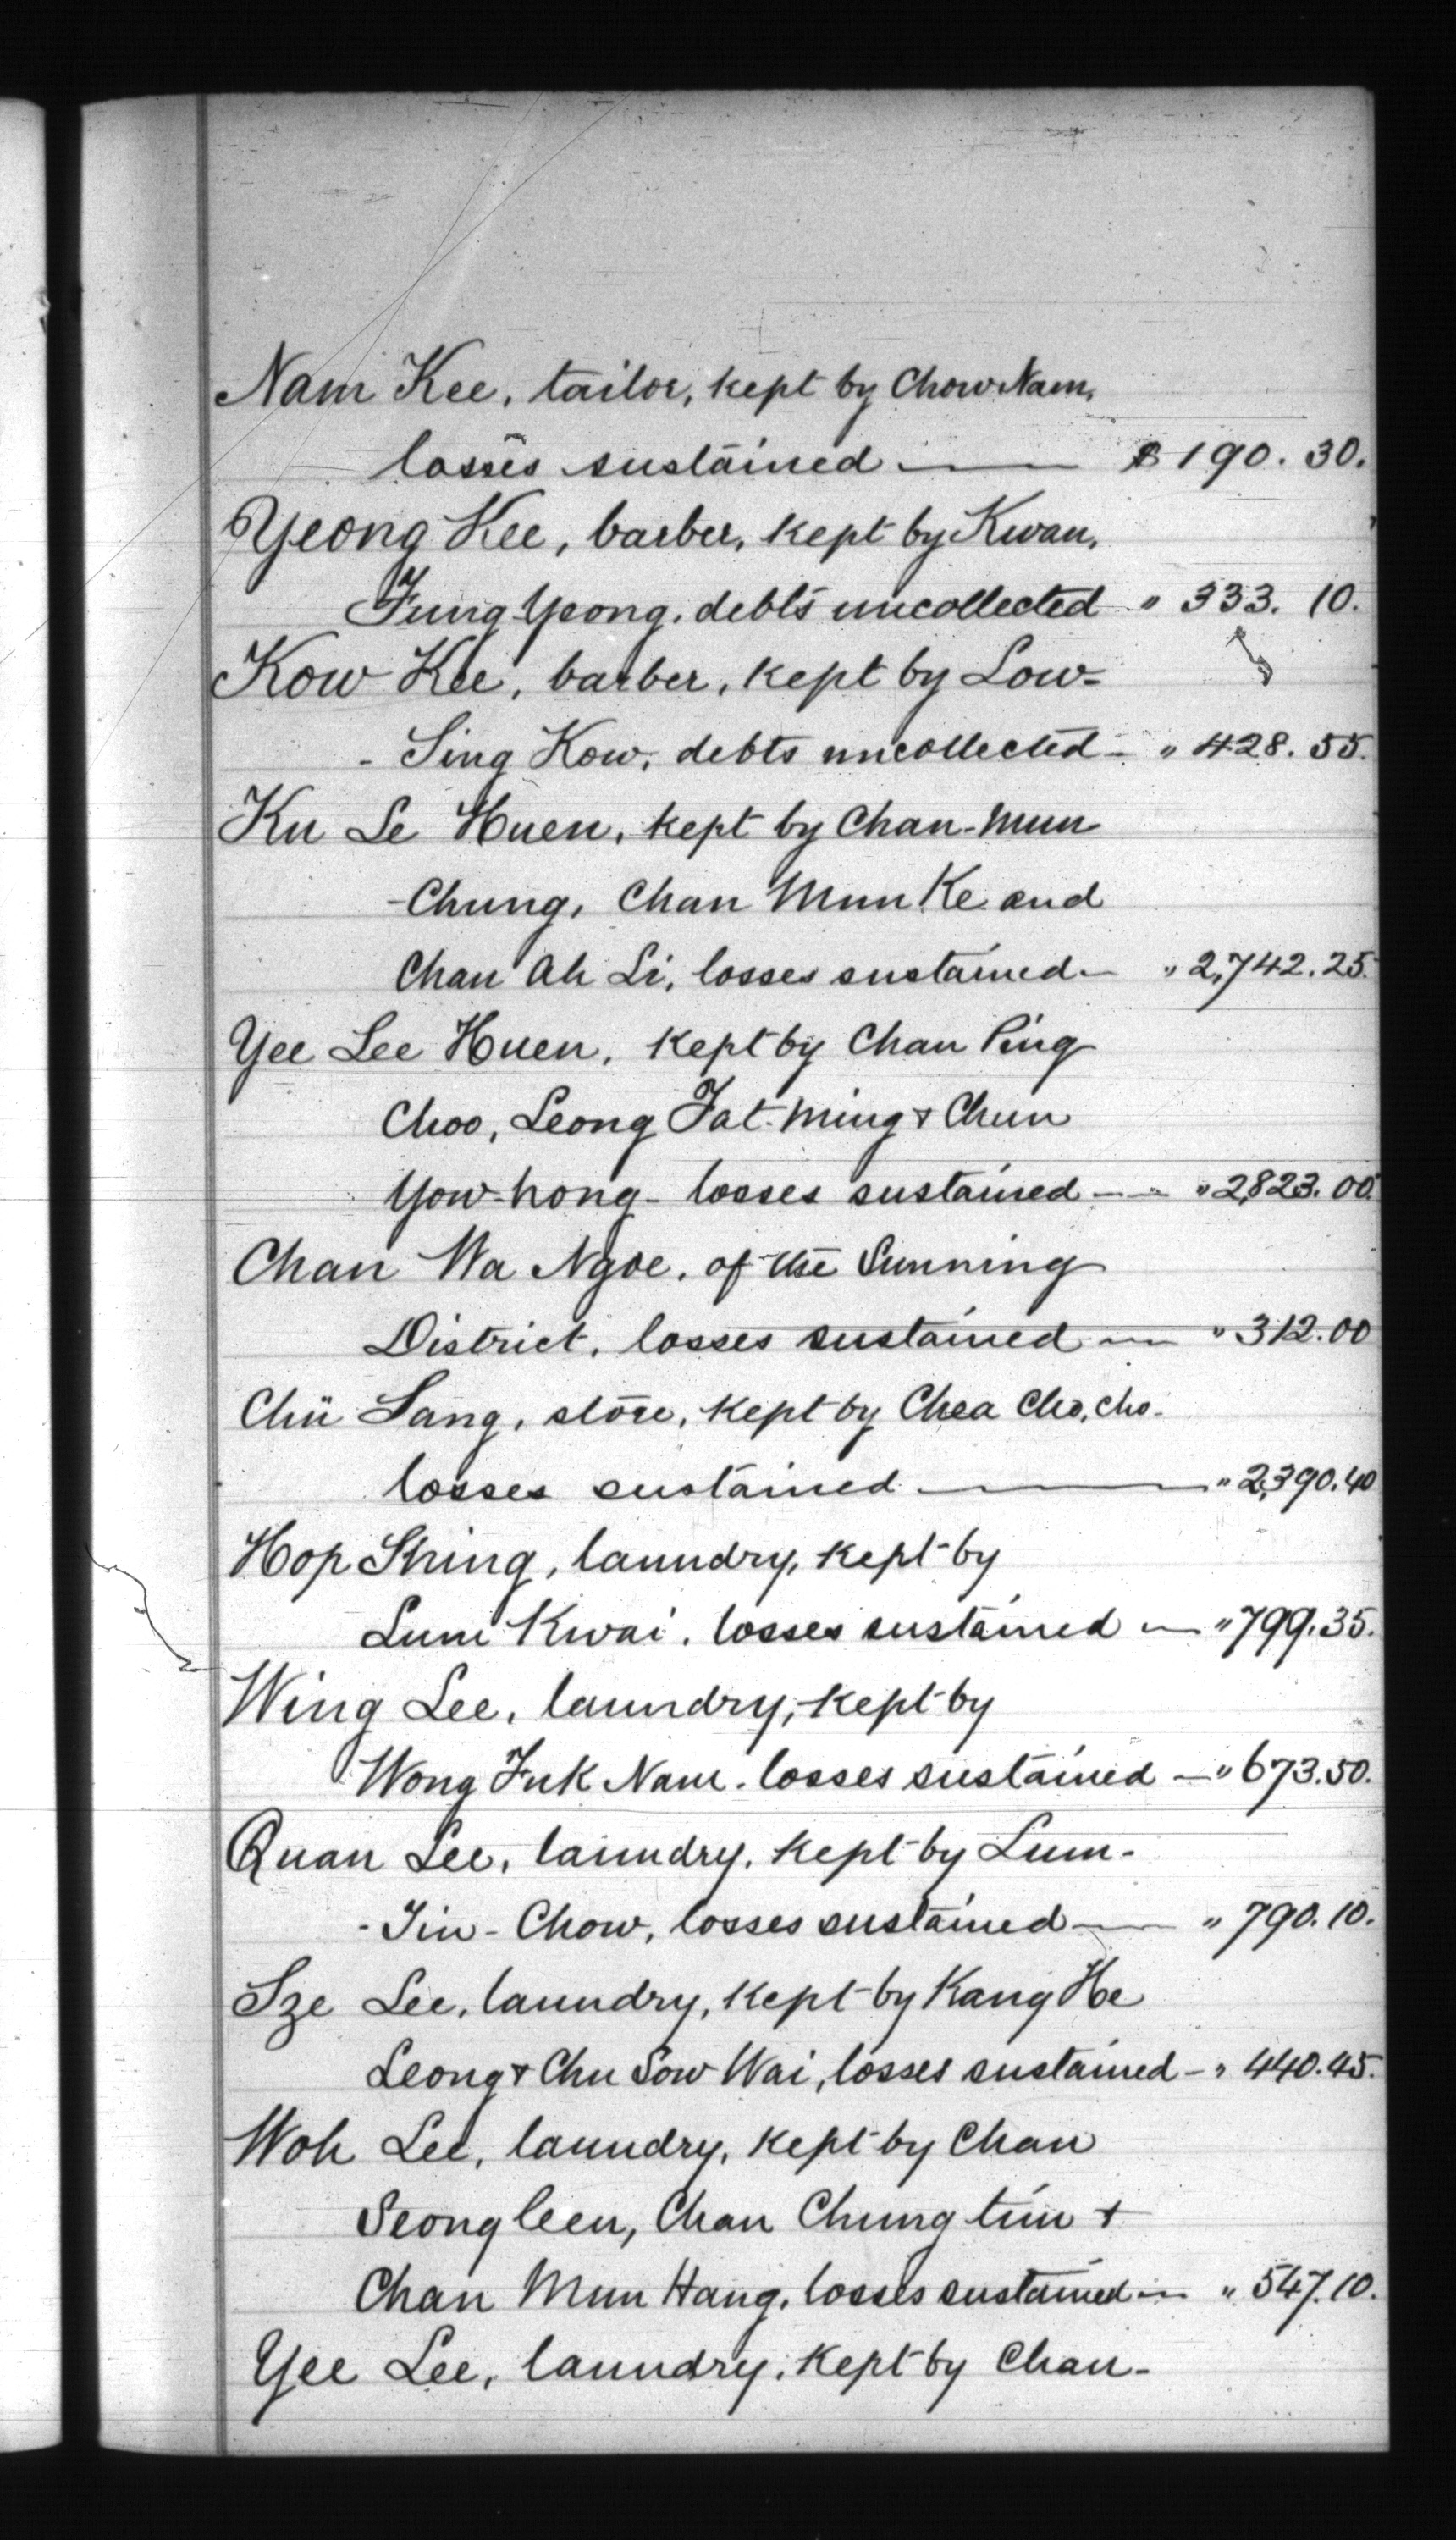 Nam Kee, tailor, kept by Chow Nam,
losses sustained — $190.30.
Yeong Kee, barber, kept by Kwan,
Fung Yeong, debts uncollected " 333.10.
Kow Kee, barber, kept by Low-
- Sing Kow, debts uncollected - " 428.55.
Ku Le Huen, kept by Chan-Mun
-Chung, Chan Mun Ke and
Chan Ah Li, losses sustained - " 2,742.25.
Yee Lee Huen, kept by Chan Ping
Choo, Leong Fat-Ming & Chun
Yow-hong - losses sustained — " 2,823.00.
Chan Wa Ngoe, of the Sunning
District, losses sustained — " 312.00
Chü Sang, store, kept by Chea Cho, cho-
losses sustained — " 2,390.40
Hop Shing, laundry, kept by
Lum Kwai, losses sustained — " 799.35.
Wing Lee, laundry, kept by
Wong Fuk Nam. losses sustained — " 673.50.
Quan Lee, laundry, kept by Lum-
- Tin - Chow, losses sustained — " 790.10.
Sze Lee, laundry, kept by Kang He
Leong & Chu Sow Wai, losses sustained - " 440.45.
Woh Lee, laundry, kept by Chan
Seong leen, Chan Chung tim &
Chan Mun Hang, losses sustained — " 547.10.
Yee Lee, laundry, kept by Chan-